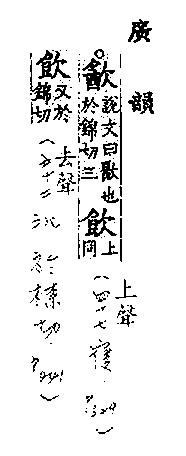 廣韻
㱃說文曰歠也於錦切三飲上同(上聲四十七寑
飲又於錦切(去聲五十二沁於禁切